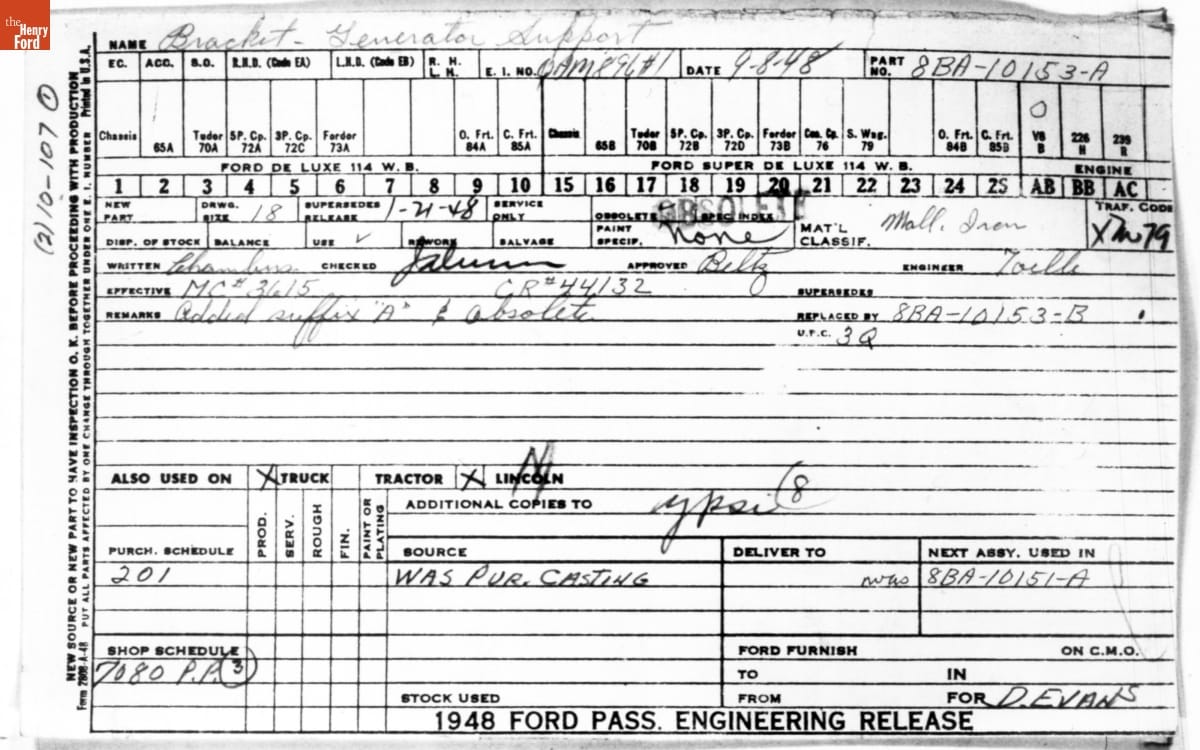 the Henry Ford
NAME Bracket - Generator Support
EC. ACC. B.O. R.H.D. (Code EA) L.H.D. (Code EB) R. H. L. H. E. I. NO. DATE 9-8-48 PART NO. 8BA-10153-A
Chassis 65A Tudor 70A 5P. Cp. 72A 3P. Cp. 72C Fordor 73A O. Frt. 84A C. Frt. 85A Chassis 65B Tudor 70B 5P. Cp. 72B 3P. Cp. 72D Fordor 73B Con. Cp. 76 S. Wag. 79 O. Frt. 84B C. Frt. 85B V8 B 226 H 239 R
FORD DE LUXE 114 W. B. FORD SUPER DE LUXE 114 W. B. ENGINE
1 2 3 4 5 6 7 8 9 10 15 16 17 18 19 20 21 22 23 24 25 AB BB AC
NEW PART DRWG. SIZE 18 SUPERSEDES RELEASE 1-21-48 SERVICE ONLY OBSOLETE SPEC INDEX OBSOLETE MAT'L CLASSIF. Mall. Iron TRAF. CODE
DISP. OF STOCK BALANCE USE REWORK SALVAGE PAINT SPECIF. none
WRITTEN Chambers CHECKED APPROVED Beltz ENGINEER
EFFECTIVE MC#3615 CR#44132 SUPERSEDES
REMARKS Added suffix "A" & obsolete. REPLACED BY 8BA-10153-B
U.P.C. 3Q
ALSO USED ON X TRUCK TRACTOR X LINCOLN
PROD. SERV. ROUGH FIN. PAINT OR PLATING
ADDITIONAL COPIES TO ypsi 8
PURCH. SCHEDULE SOURCE DELIVER TO NEXT ASSY. USED IN
201 WAS PUR. CASTING was 8BA-10151-A
SHOP SCHEDULE FORD FURNISH ON C.M.O.
7080 P.P. 3 TO IN
STOCK USED FROM FOR D. EVANS
1948 FORD PASS. ENGINEERING RELEASE
(2) 10-107
NEW SOURCE OR NEW PART TO HAVE INSPECTION O. K. BEFORE PROCEEDING WITH PRODUCTION
PUT ALL PARTS AFFECTED BY ONE CHANGE THROUGH TOGETHER UNDER ONE E. I. NUMBER
Printed in U.S.A.